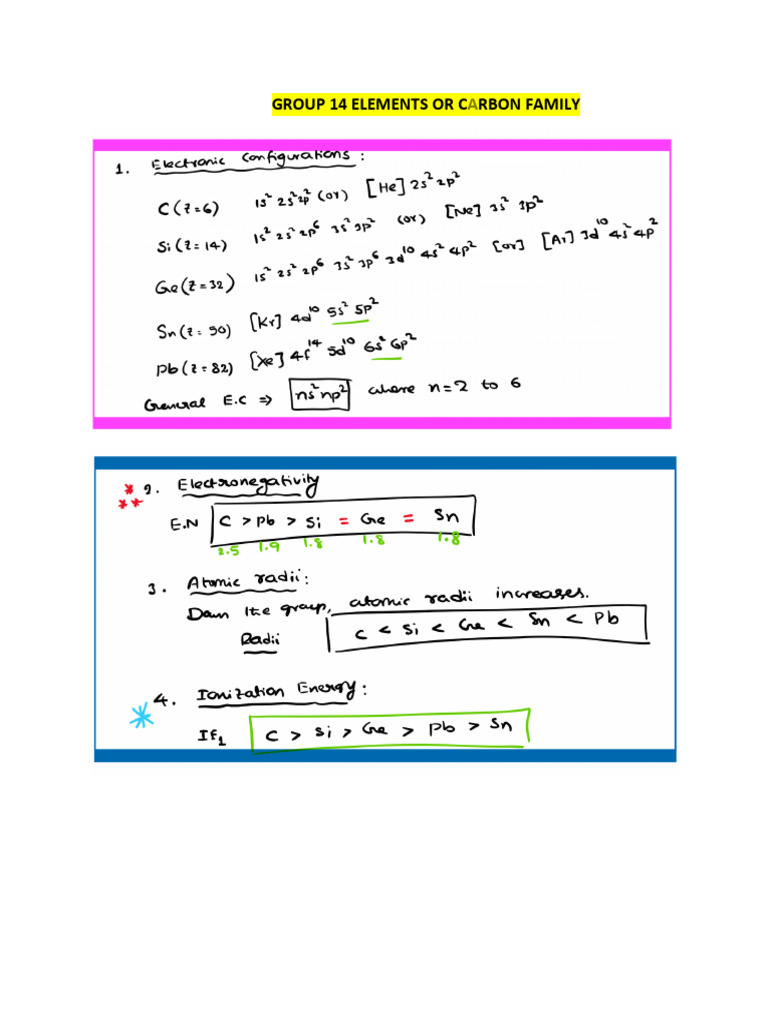 GROUP 14 ELEMENTS OR CARBON FAMILY
1. Electronic Configurations :
C (Z=6) 1s² 2s² 2p² (or) [He] 2s² 2p²
Si (Z=14) 1s² 2s² 2p⁶ 3s² 3p² (or) [Ne] 3s² 3p²
Ge (Z=32) 1s² 2s² 2p⁶ 3s² 3p⁶ 3d¹⁰ 4s² 4p² [or] [Ar] 3d¹⁰ 4s² 4p²
Sn (Z=50) [Kr] 4d¹⁰ 5s² 5p²
Pb (Z=82) [Xe] 4f¹⁴ 5d¹⁰ 6s² 6p²
General E.C ⇒ ns² np² where n=2 to 6
* ** 2. Electronegativity
E.N C > Pb > Si = Ge = Sn
2.5 1.9 1.8 1.8 1.8
3. Atomic radii :
Down the group, atomic radii increases.
Radii C < Si < Ge < Sn < Pb
* 4. Ionization Energy :
IE₁ C > Si > Ge > Pb > Sn